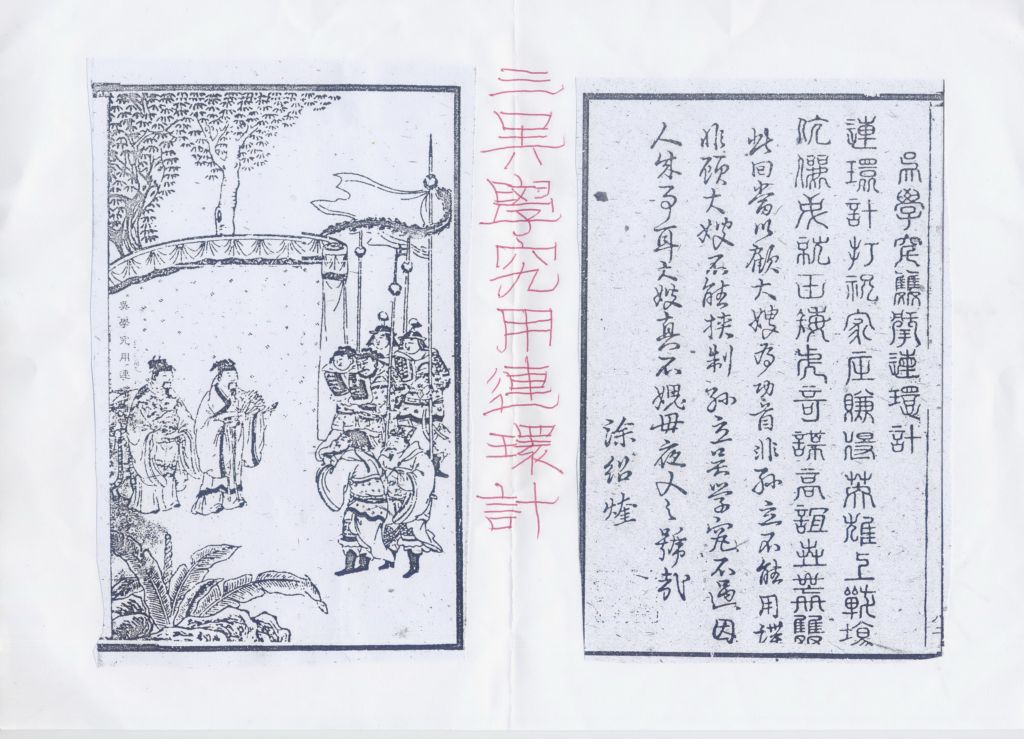 吳學究雙掌連環計
連環計打祝家庄賺得英雄上戰場
奇謀高誼世無雙
此回當以顧大嫂為功首非孫立不能用謀
非顧大嫂不能挾制孫立吳学究不過因
人成事耳大嫂真不媿母夜叉之號哉
涂紹煃
三吴學究用連環計
吳學究用連